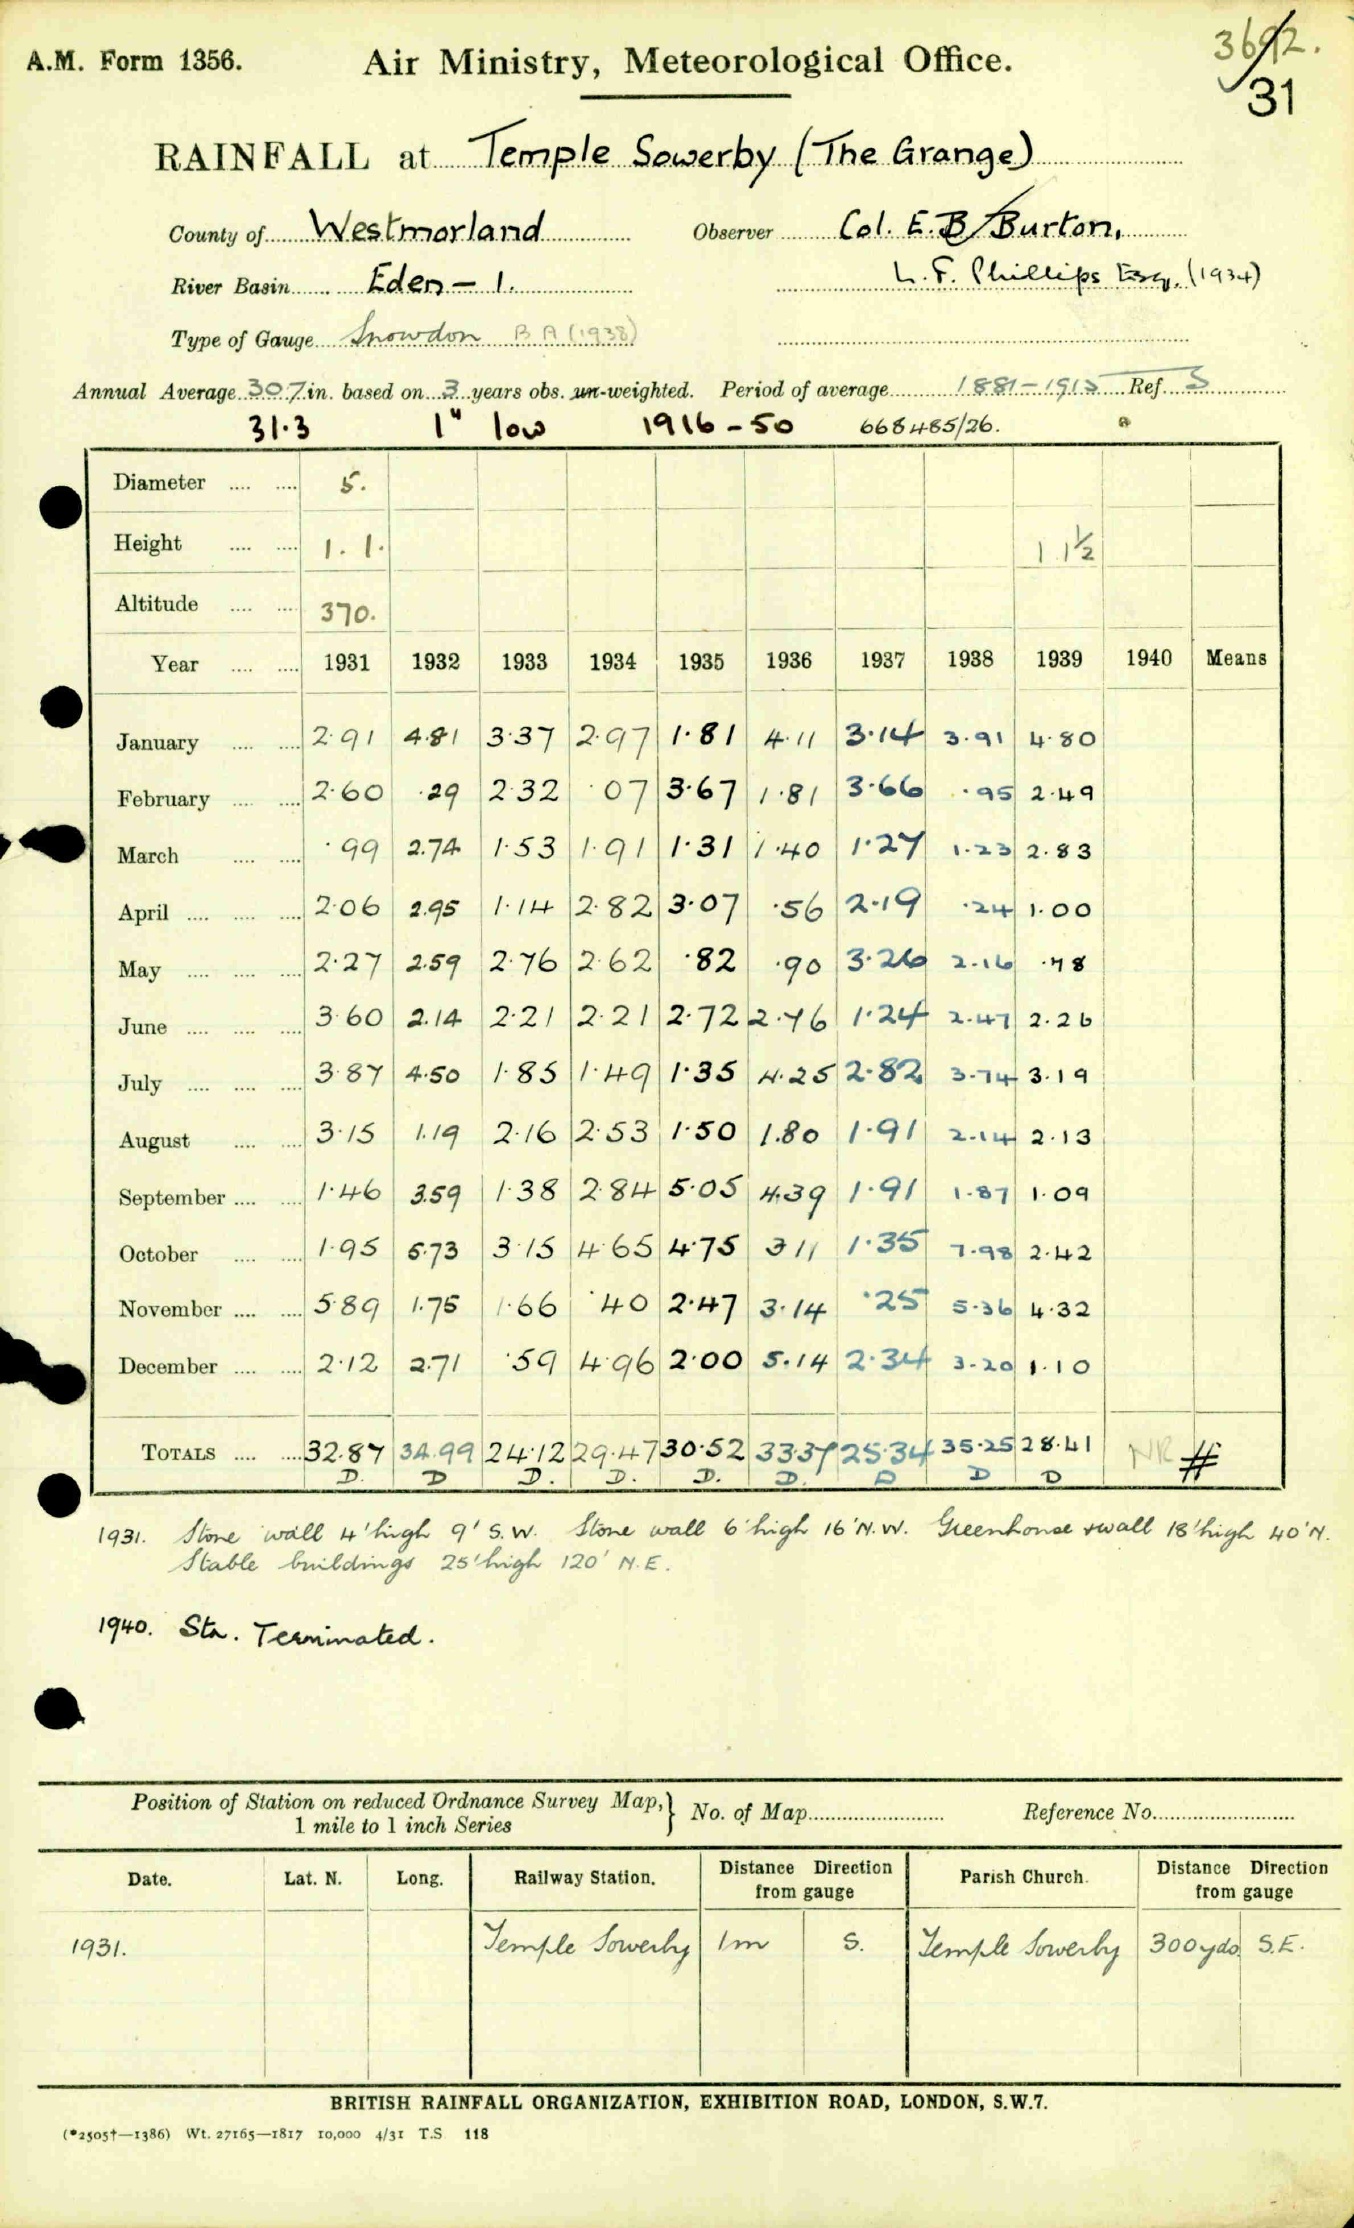 A.M. Form 1356. Air Ministry, Meteorological Office. 3692.
31
RAINFALL at Temple Sowerby (The Grange)
County of Westmorland Observer Col. E. B. Burton.
River Basin Eden – 1. L. F. Phillips Esq. (1934)
Type of Gauge Snowdon B A (1938)
Annual Average 30.7 in. based on 3 years obs. un-weighted. Period of average 1881–1915 Ref. S
31.3 1" low 1916 – 50 668485/26.
Diameter 5.
Height 1. 1. 1 1½
Altitude 370.
Year 1931 1932 1933 1934 1935 1936 1937 1938 1939 1940 Means
January 2.91 4.81 3.37 2.97 1.81 4.11 3.14 3.91 4.80
February 2.60 .29 2.32 .07 3.67 1.81 3.66 .95 2.49
March .99 2.74 1.53 1.91 1.31 1.40 1.27 1.23 2.83
April 2.06 2.95 1.14 2.82 3.07 .56 2.19 .24 1.00
May 2.27 2.59 2.76 2.62 .82 .90 3.26 2.16 .78
June 3.60 2.14 2.21 2.21 2.72 2.76 1.24 2.47 2.26
July 3.87 4.50 1.85 1.49 1.35 4.25 2.82 3.74 3.19
August 3.15 1.19 2.16 2.53 1.50 1.80 1.91 2.14 2.13
September 1.46 3.59 1.38 2.84 5.05 4.39 1.91 1.87 1.09
October 1.95 5.73 3.15 4.65 4.75 3.11 1.35 7.98 2.42
November 5.89 1.75 1.66 .40 2.47 3.14 .25 5.36 4.32
December 2.12 2.71 .59 4.96 2.00 5.14 2.34 3.20 1.10
TOTALS 32.87 34.99 24.12 29.47 30.52 33.37 25.34 35.25 28.41 NR #
D. D D. D. D. D. D D D
1931. Stone wall 4' high 9' S.W. Stone wall 6' high 16' N.W. Greenhouse + wall 18' high 40' N.
Stable buildings 25' high 120' N.E.
1940. Stn. Terminated.
Position of Station on reduced Ordnance Survey Map, } No. of Map Reference No.
1 mile to 1 inch Series
Date. Lat. N. Long. Railway Station. Distance Direction from gauge Parish Church. Distance Direction from gauge
1931. Temple Sowerby 1m S. Temple Sowerby 300 yds. S.E.
BRITISH RAINFALL ORGANIZATION, EXHIBITION ROAD, LONDON, S.W.7.
(*2505†—1386) Wt. 27165—1817 10,000 4/31 T.S 118